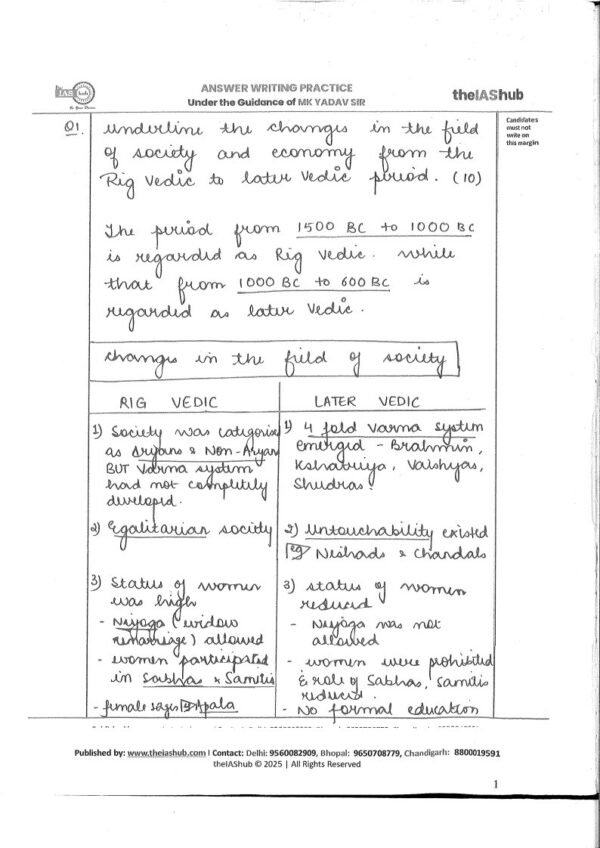 IAS hub
ANSWER WRITING PRACTICE
Under the Guidance of MK YADAV SIR
theIAShub
Candidates
must not
write on
this margin
Q1. underline the changes in the field
of society and economy from the
Rig Vedic to later Vedic period. (10)
The period from 1500 BC to 1000 BC
is regarded as Rig Vedic. while
that from 1000 BC to 600 BC is
regarded as later Vedic.
changes in the field of society
RIG VEDIC
1) Society was categorise
as Aryans & Non-Aryan
BUT Varna system
had not completely
developed.
2) Egalitarian society
3) Status of women
was high
- Niyoga (widow
remarriage) allowed
- women participated
in Sabhas & Samitis
- female sages eg Apala
LATER VEDIC
1) 4 fold Varna system
emerged - Brahmin,
Kshatriya, Vaishyas,
Shudras.
2) Untouchability existed
eg Nishads & Chandals
3) status of women
reduced
- Niyoga was not
allowed
- women were prohibited
& role of Sabhas, Samitis
reduced.
- No formal education
Published by: www.theiashub.com | Contact: Delhi: 9560082909, Bhopal: 9650708779, Chandigarh: 8800019591
theIAShub © 2025 | All Rights Reserved
1